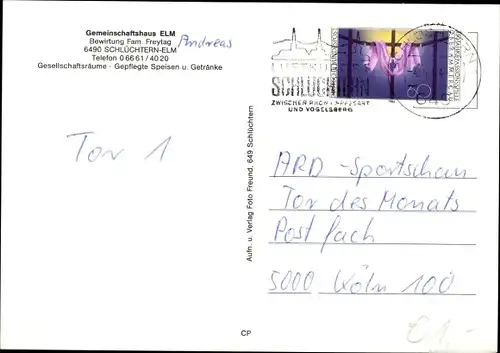 Gemeinschaftshaus ELM
Bewirtung Fam. Freytag Andreas
6490 SCHLÜCHTERN-ELM
Telefon 0 66 61 / 40 20
Gesellschaftsräume · Gepflegte Speisen u. Getränke
Tor 1
Aufn. u. Verlag Foto Freund, 649 Schlüchtern
CP
LUFTKURORT
SCHLÜCHTERN
ZWISCHEN RHÖN · SPESSART
UND VOGELSBERG
60
ARD-Sportschau
Tor des Monats
Postfach
5000 Köln 100